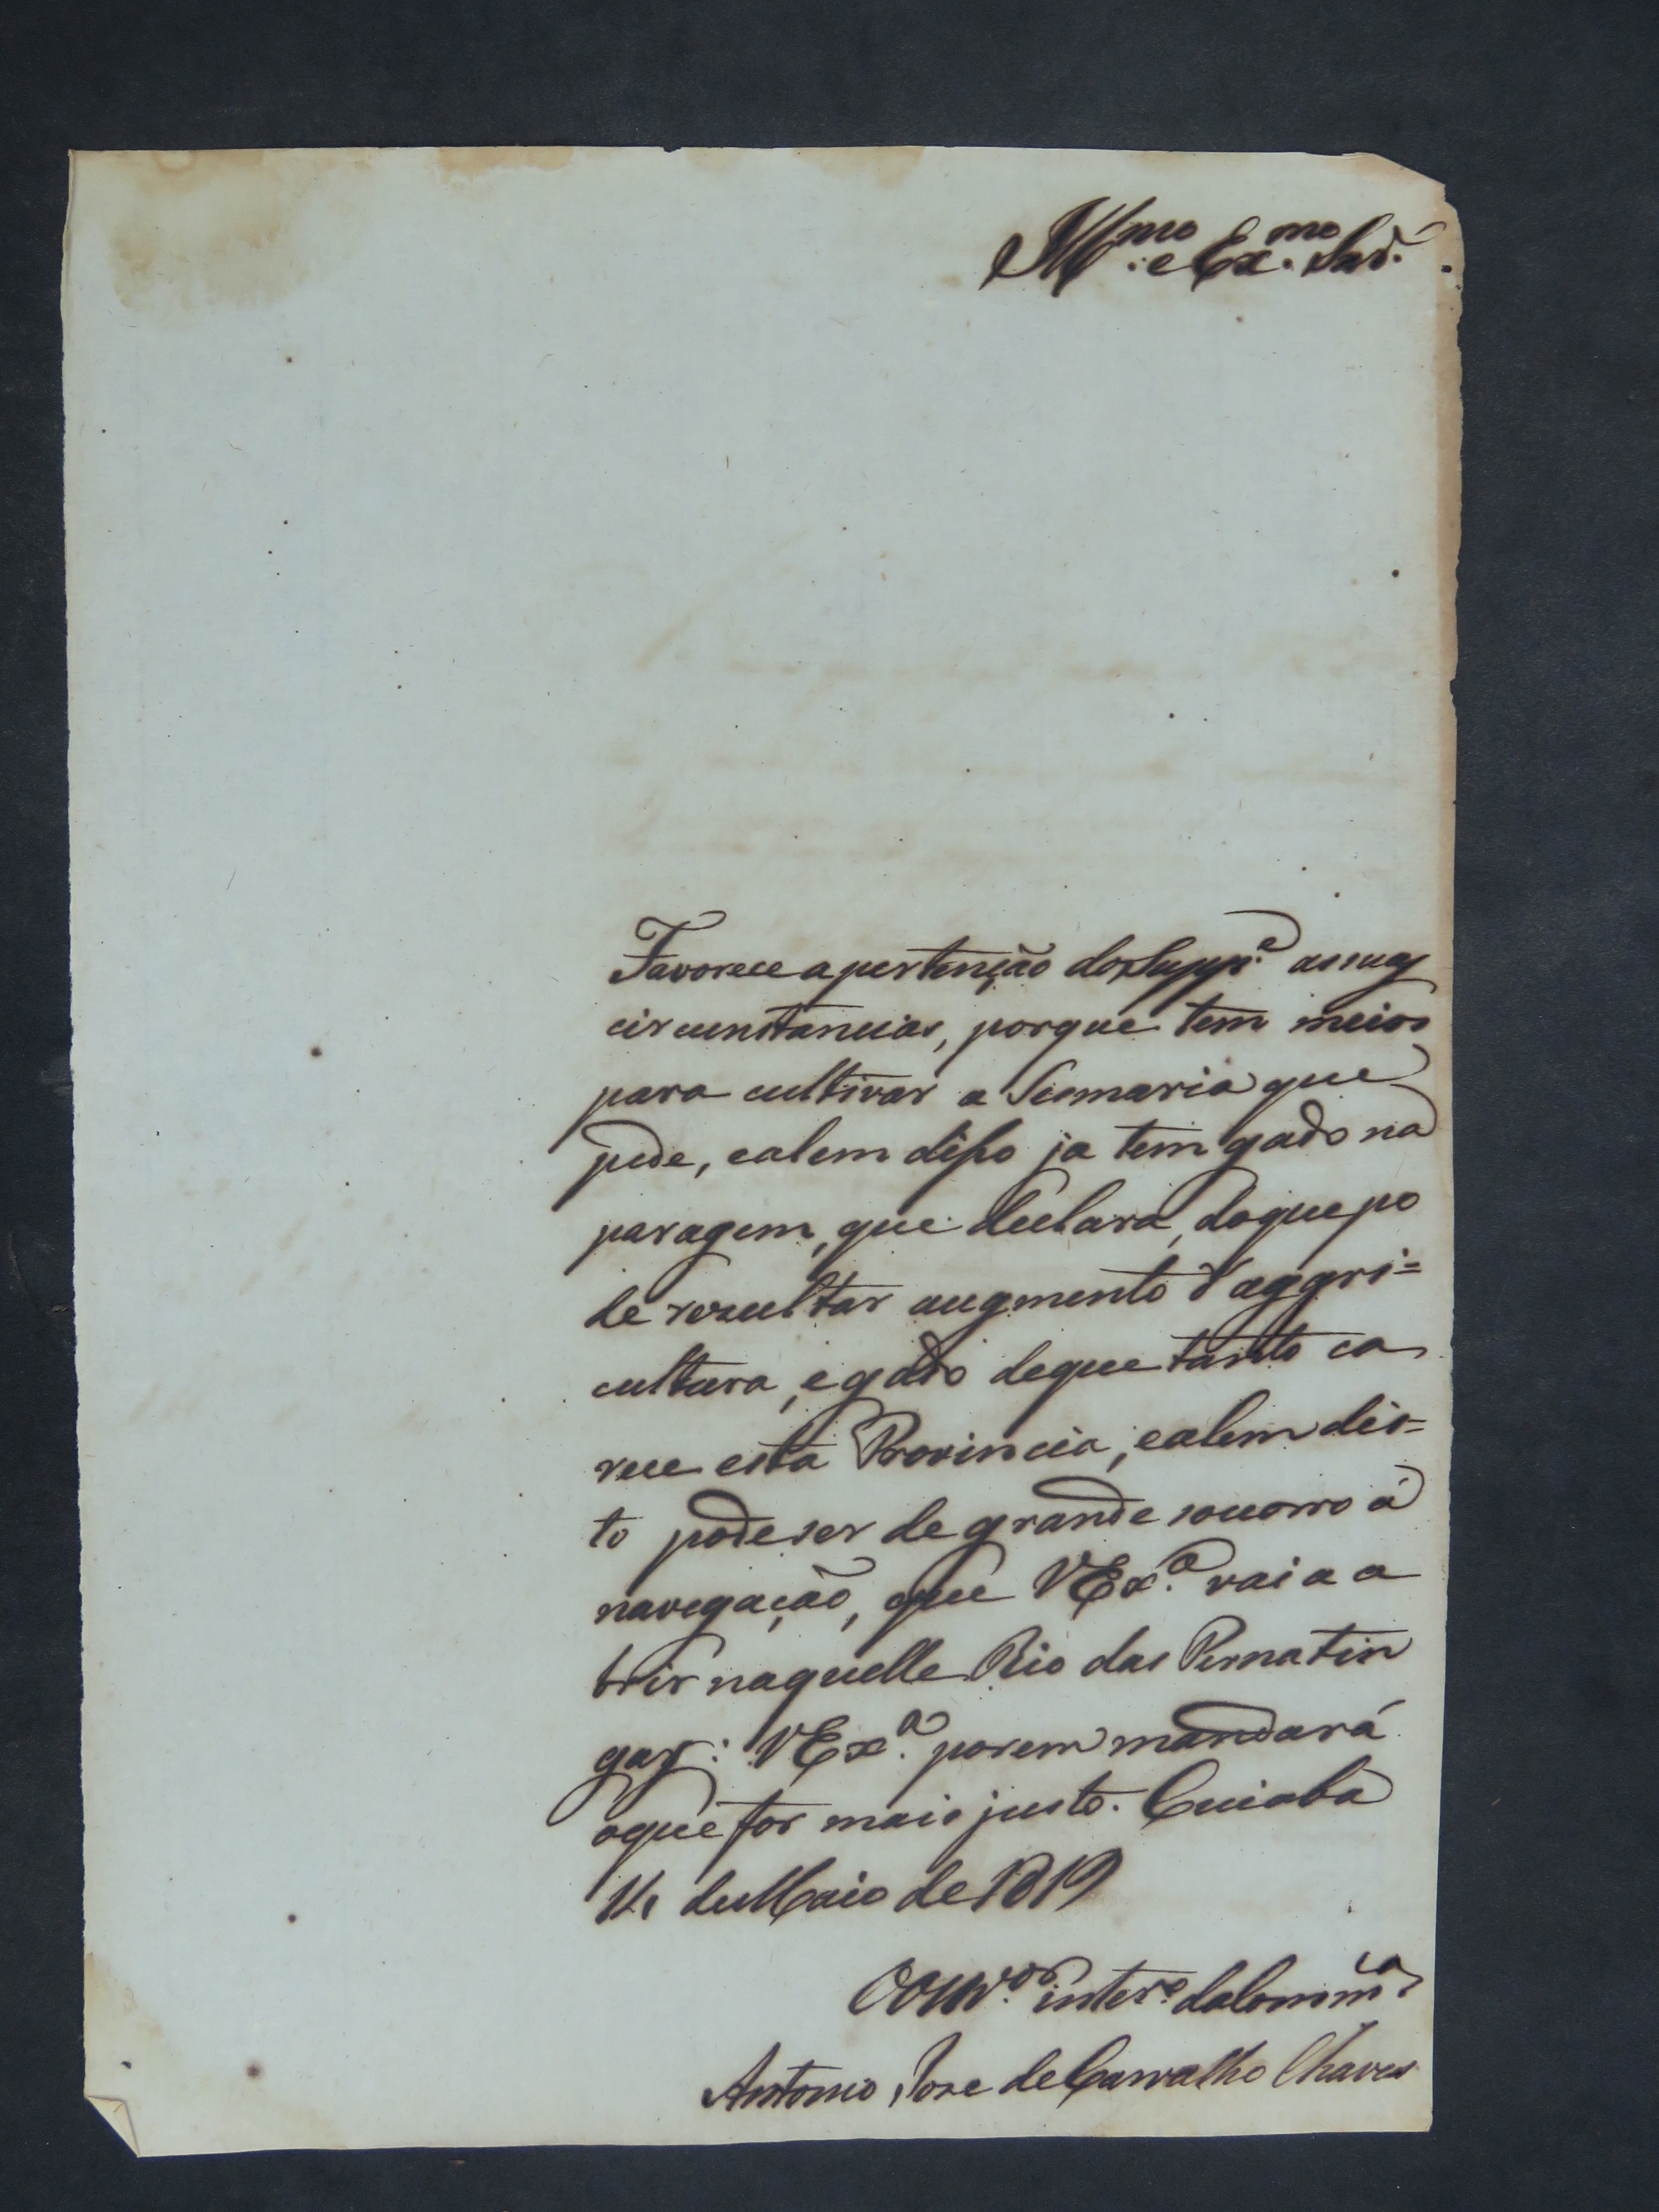 Ill.mo e Ex.mo Snr.
Favorece a pertenção do Supp.e as suas
circunstancias, porque tem meios
para cultivar a Sesmaria que
pede, e alem disso ja tem gado na
paragem, que declara, do que po
de resultar augmento d'aggri=
cultura, e gado de que tanto ca
rece esta Provincia, e alem dis=
to pode ser de grande socorro á
navegação, que VEx.a vai a a
brir naquelle Rio das Piernatin
gas: VEx.a porem mandará
o que for mais justo. Cuiabá
14 de Maio de 1819
O Ouv.or inter.o da Com.ca
Antonio Jose de Carvalho Chaves